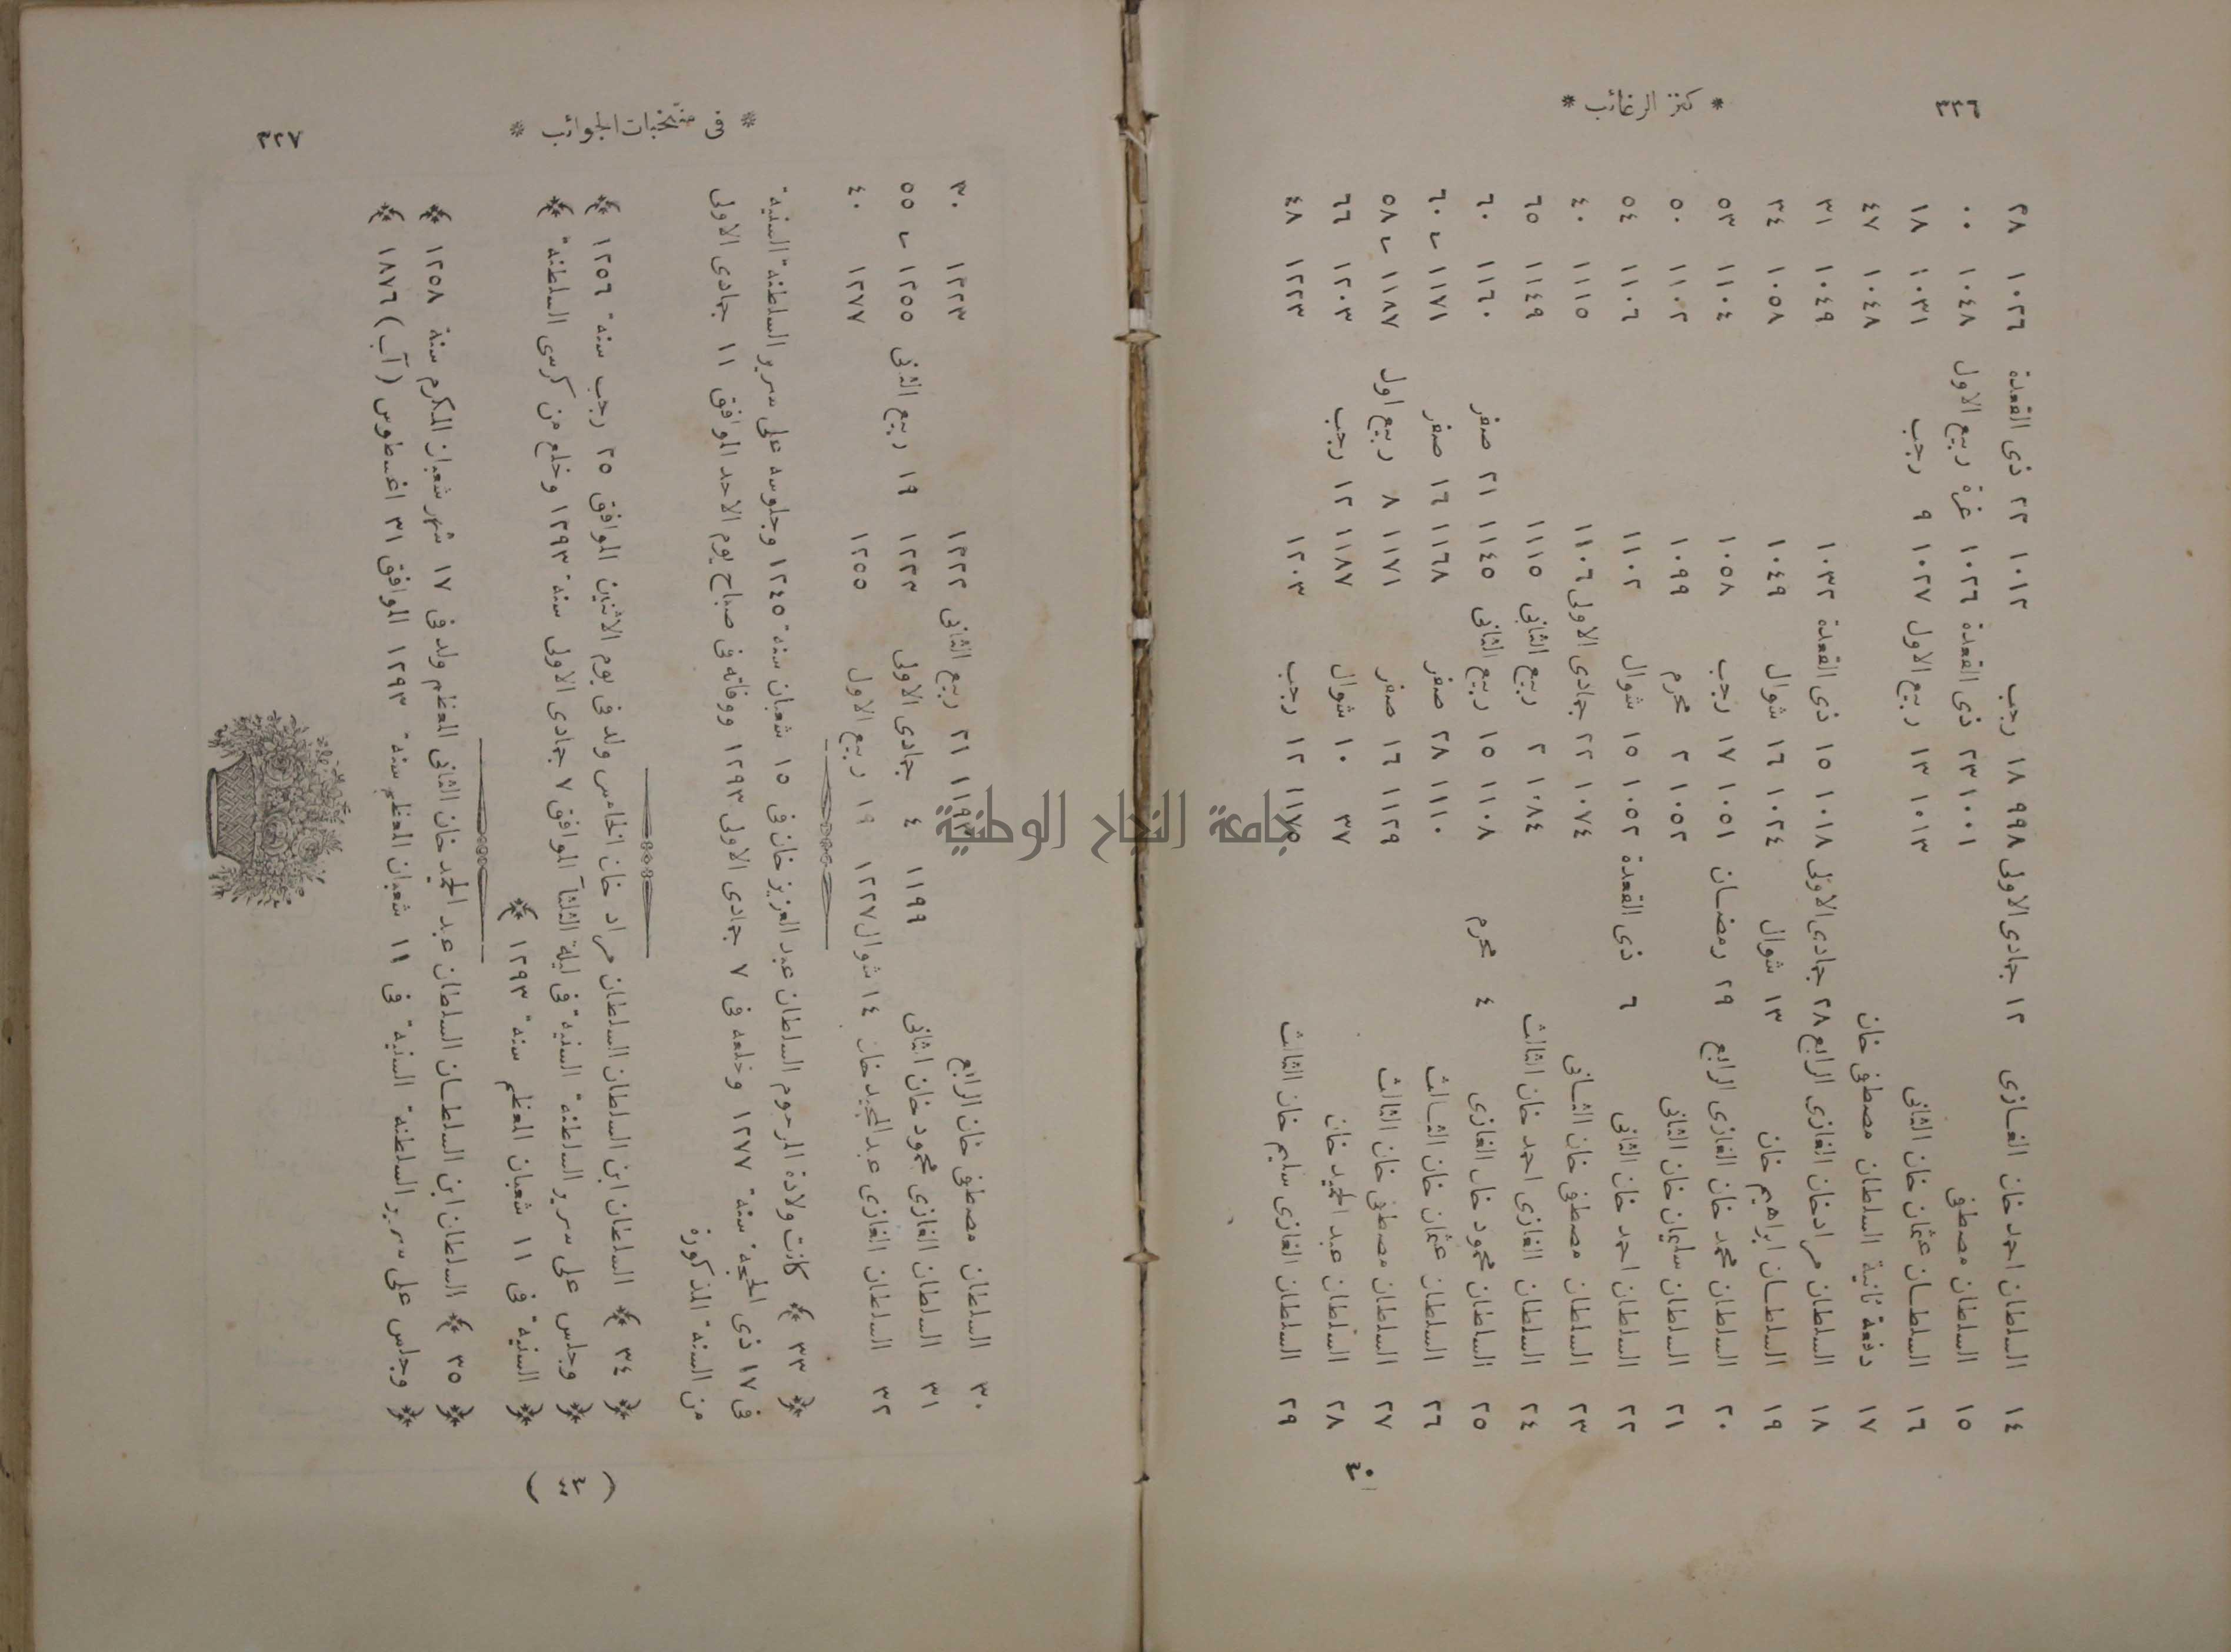 ٣٢٦
* كنز الرغائب *
١٤ السلطان احمد خان الغازى ١٢ جمادى الاولى ٩٩٨ ١٨ رجب ١٠١٢ ٢٣ ذى القعدة ١٠٢٦ ٢٨
١٥ السلطان مصطفى ١٠٠١ ٢٣ ذى القعدة ١٠٢٦ غرة ربيع الاول ١٠٤٨ ٠٠
١٦ السلطان عثمان خان الثانى ١٠١٣ ١٣ ربيع الاول ١٠٢٧ ٩ رجب ١٠٣١ ١٨
١٧ دفعة ثانية السلطان مصطفى خان ١٠٤٨ ٤٧
١٨ السلطان مراد خان الغازى الرابع ٢٨ جمادى الاولى ١٠١٨ ١٥ ذى القعدة ١٠٣٢ ١٠٤٩ ٣١
١٩ السلطان ابراهيم خان ١٣ شوال ١٠٢٤ ١٦ شوال ١٠٤٩ ١٠٥٨ ٣٤
٢٠ السلطان محمد خان الغازى الرابع ٢٩ رمضان ١٠٥١ ١٧ رجب ١٠٥٨ ١١٠٤ ٥٣
٢١ السلطان سليمان خان الثانى ١٠٥٢ ٢ محرم ١٠٩٩ ١١٠٢ ٥٠
٢٢ السلطان احمد خان الثانى ٦ ذى القعدة ١٠٥٢ ١٥ شوال ١١٠٢ ١١٠٦ ٥٤
٢٣ السلطان مصطفى خان الثانى ١٠٧٤ ٢٢ جمادى الاولى ١١٠٦ ١١١٥ ٤٠
٢٤ السلطان الغازى احمد خان الثالث ١٠٨٤ ٢ ربيع الثانى ١١١٥ ١١٤٩ ٦٥
٢٥ السلطان محمود خان الغازى ٤ محرم ١١٠٨ ١٥ ربيع الثانى ١١٤٥ ٢١ صفر ١١٦٠ ٦٠
٢٦ السلطان عثمان خان الثالث ١١١٠ ٢٨ صفر ١١٦٨ ١٦ صفر ١١٧١ ٦٠
٢٧ السلطان مصطفى خان الثالث ١١٢٩ ١٦ صفر ١١٧١ ٨ ربيع اول ١١٨٧ ٥٨
٢٨ السلطان عبد الحميد خان ٣٧ ١٠ شوال ١١٨٧ ١٢ رجب ١٢٠٣ ٦٦
٢٩ السلطان الغازى سليم خان الثالث ١١٧٥ ١٢ رجب ١٢٠٣ ١٢٢٣ ٤٨
٣٢٧
* فى منتخبات الجوائب *
٣٠ السلطان مصطفى خان الرابع ١١٩٣ ٢١ ربيع الثانى ١٢٢٢ ١٢٢٣ ٣٠
٣١ السلطان الغازى محمود خان الثانى ١١٩٩ ٤ جمادى الاولى ١٢٢٣ ١٩ ربيع الثانى ١٢٥٥ ٥٥
٣٢ السلطان الغازى عبد المجيد خان ١٤ شوال ١٢٢٧ ١٩ ربيع الاول ١٢٥٥ ١٢٧٧ ٤٠
﴿ ٣٣ ﴾ كانت ولادة المرحوم السلطان عبد العزيز خان فى ١٥ شعبان سنة ١٢٤٥ وجلوسه على سرير السلطنة السنية
فى ١٧ ذى الحجة سنة ١٢٧٧ وخلعه فى ٧ جمادى الاولى ١٢٩٣ ووفاته فى صباح يوم الاحد الموافق ١١ جمادى الاولى
من السنة المذكورة
﴿ ٣٤ ﴾ السلطان ابن السلطان السلطان مراد خان الخامس ولد فى يوم الاثنين الموافق ٢٥ رجب سنة ١٢٥٦ ﴾
﴿ وجلس على سرير السلطنة السنية فى ليلة الثلثآ الموافق ٧ جمادى الاولى سنة ١٢٩٣ وخلع من كرسى السلطنة ﴾
﴿ السنية فى ١١ شعبان المعظم سنة ١٢٩٣ ﴾
﴿ ٣٥ ﴾ السلطان ابن السلطان السلطان عبد الحميد خان الثانى المعظم ولد فى ١٧ شهر شعبان المكرم سنة ١٢٥٨ ﴾
﴿ وجلس على سرير السلطنة السنية فى ١١ شعبان المعظم سنة ١٢٩٣ الموافق ٣١ اغسطوس (آب) ١٨٧٦ ﴾
جامعة النجاح الوطنية